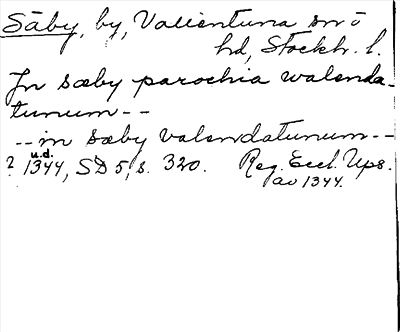 Säby, by, Vallentuna sn o
hd, Stockh. l.
Jn sæby parochia walenda-
tunum--
--in sæby valendatunum--
u.d.
? 1344, SD 5, s. 320. Reg. Eccl. Ups.
av 1344.